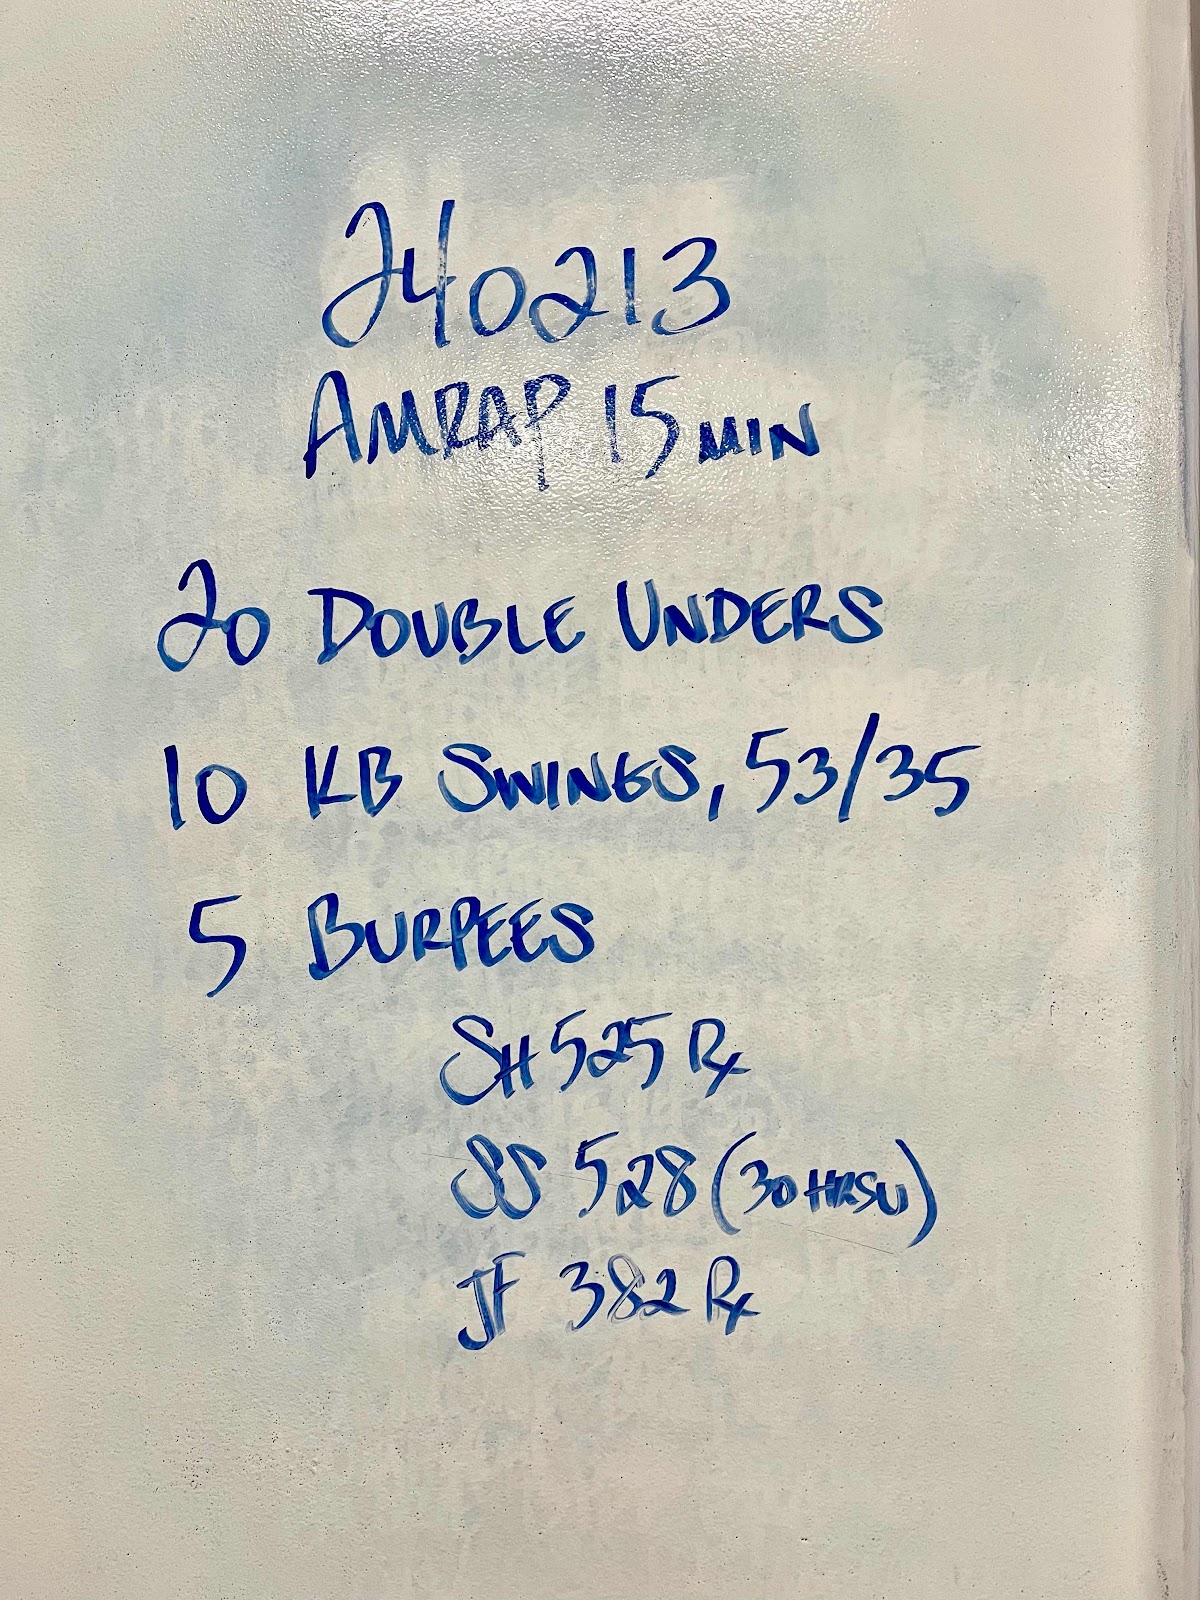 240213
AMRAP 15 MIN
20 DOUBLE UNDERS
10 KB SWINGS, 53/35
5 BURPEES
SH 525 Rx
SS 528 (30 HRSU)
JF 382 Rx